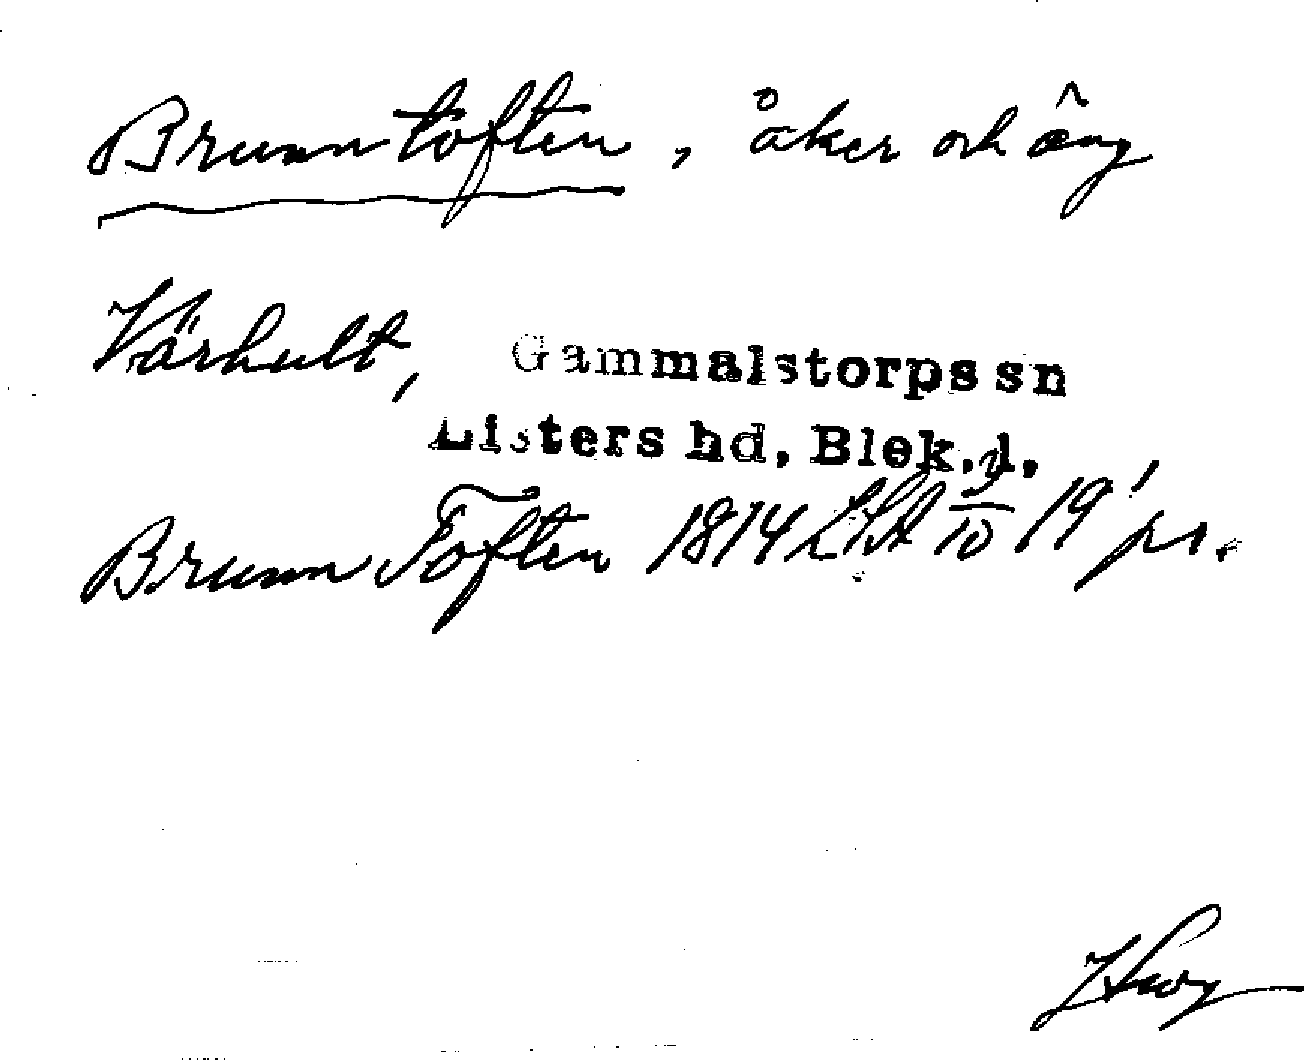 Brunntoften, åker och äng
Värhult, Gammalstorps sn
Listers hd, Blek. l.
Brunn Toften 1814 LSA 9/10 19' pr.